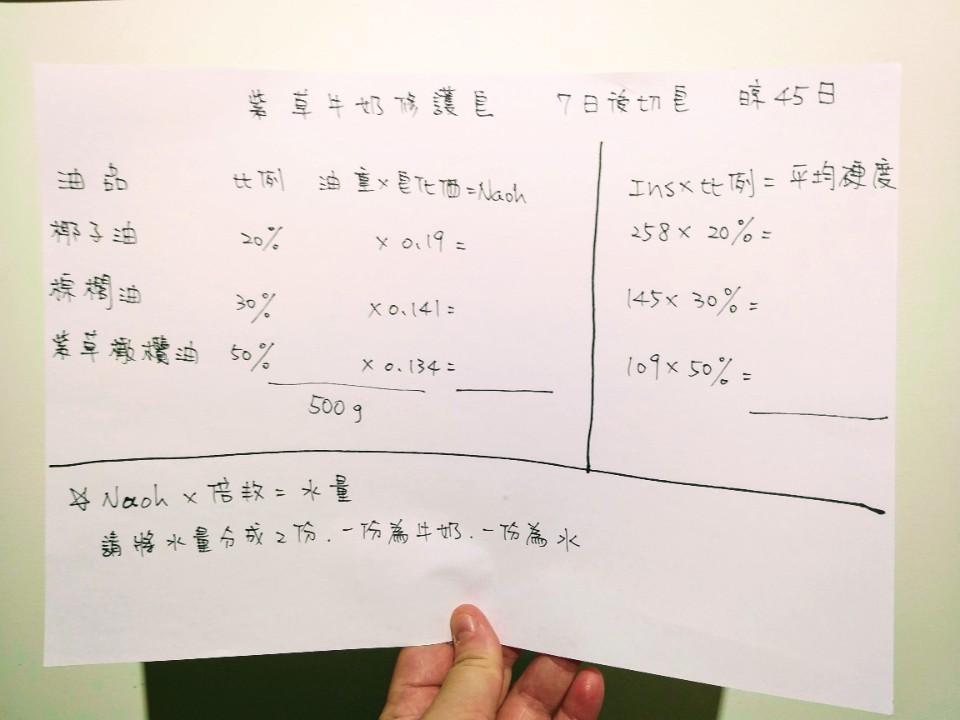 紫草牛奶修護皂 7日後切皂 晾45日
油品 比例 油重×皂化價=Naoh
椰子油 20% × 0.19 =
棕櫚油 30% × 0.141 =
紫草橄欖油 50% × 0.134 =
500g
Ins×比例=平均硬度
258 × 20% =
145 × 30% =
109 × 50% =
☆ Naoh × 倍數 = 水量
請將水量分成2份.一份為牛奶.一份為水